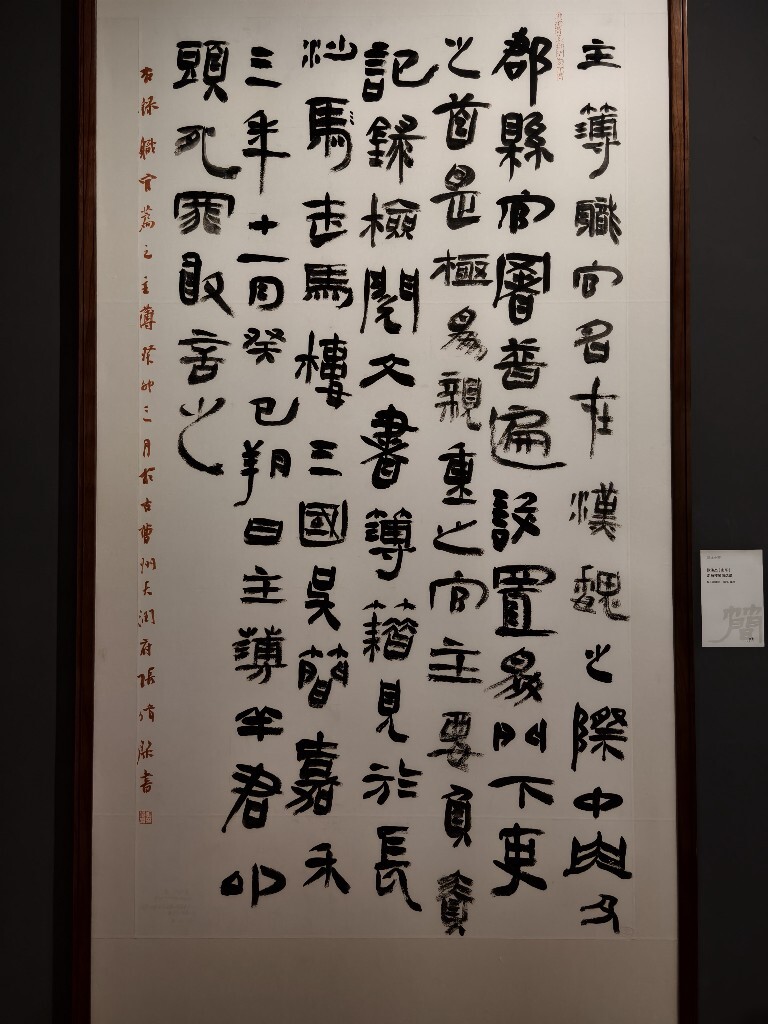 主簿職官名在漢魏之際中央及
郡縣官署普遍設置為門下吏
之首是極為親重之官主要負責
記録檢閱文書簿籍見於長
沙馬走馬樓三國吴簡嘉禾
三年十一月癸巳朔日主簿羊君叩
頭死罪敢言之
右録職官篇之主簿癸卯三月於古曹州天潤府張書